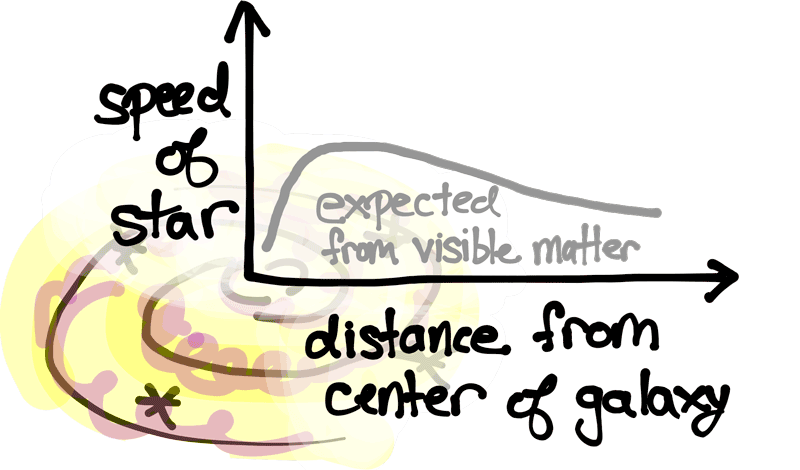 speed
of
star
expected
from visible matter
distance from
center of galaxy